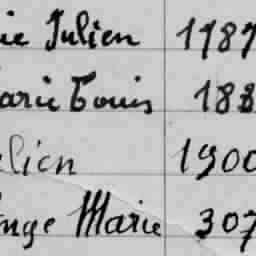 ie Julien 1787
arie Louis 188
elien 1900
ange Marie 307